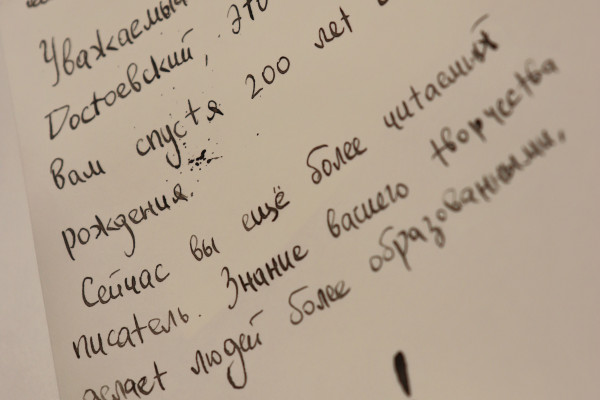 Уважаемый
Достоевский, это
вам спустя 200 лет
рождения.
Сейчас вы ещё более читаемый
писатель. Знание вашего творчества
делает людей более образованными,